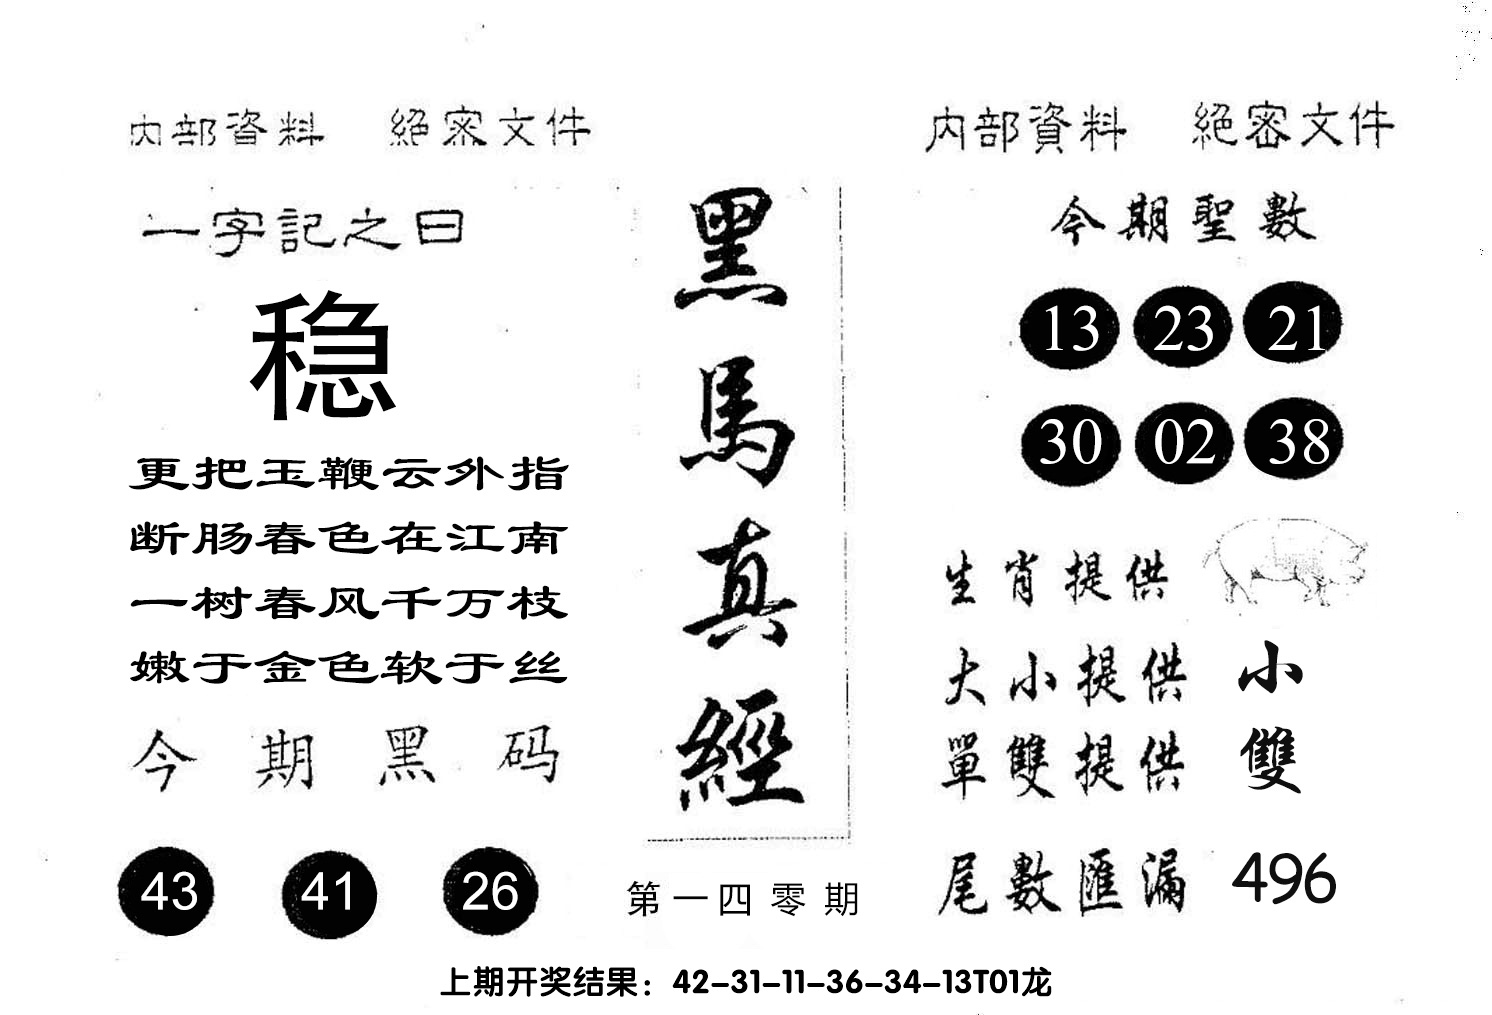 内部資料 絕密文件
一字記之曰
稳
更把玉鞭云外指
断肠春色在江南
一树春风千万枝
嫩于金色软于丝
今期黑码
43 41 26
黑馬真經
第一四零期
内部資料 絕密文件
今期聖數
13 23 21
30 02 38
生肖提供
大小提供 小
單雙提供 雙
尾數匯漏 496
上期开奖结果：42-31-11-36-34-13T01龙